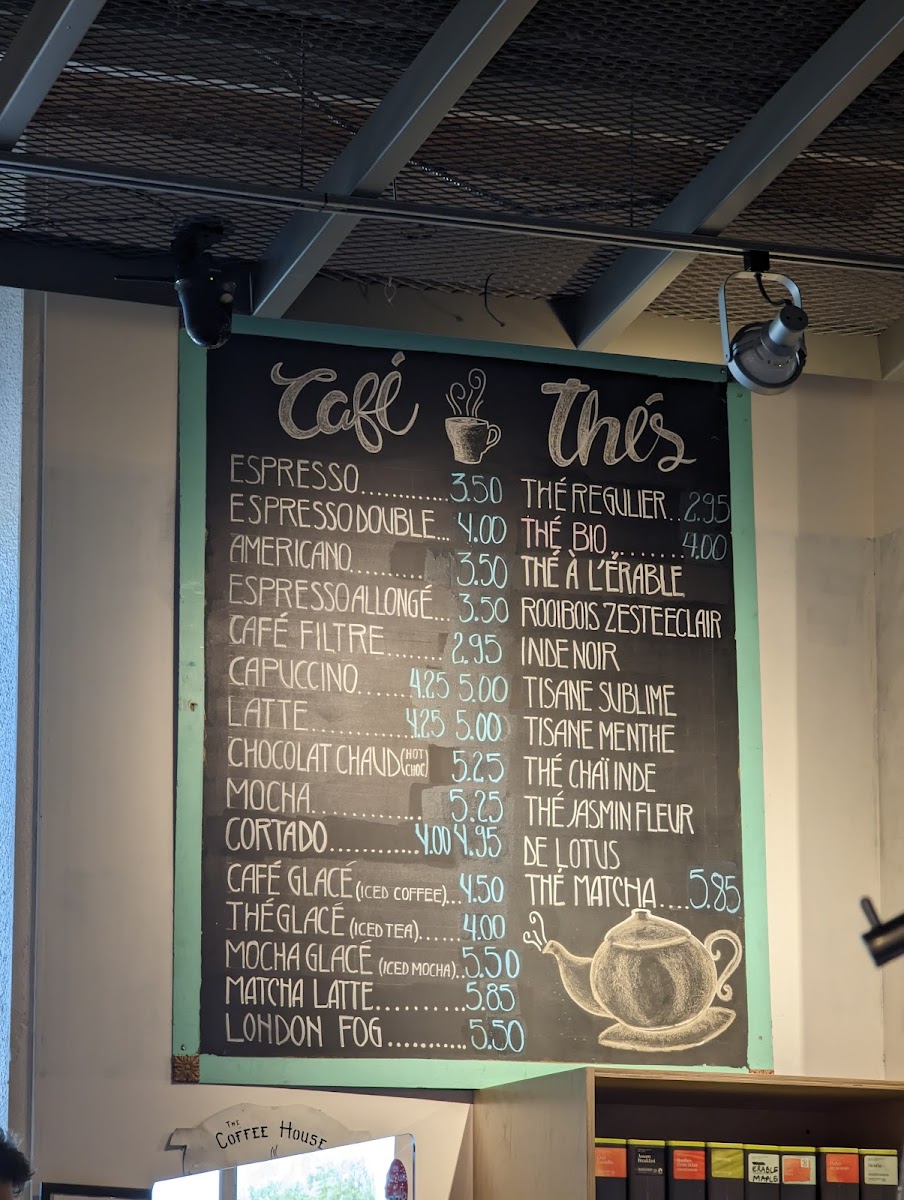 Café
ESPRESSO............3.50
ESPRESSO DOUBLE... 4.00
AMERICANO.......... 3.50
ESPRESSO ALLONGÉ... 3.50
CAFÉ FILTRE....... 2.95
CAPUCCINO......4.25 5.00
LATTE............4.25 5.00
CHOCOLAT CHAUD (HOT CHOC) 5.25
MOCHA............. 5.25
CORTADO...........4.00 4.95
CAFÉ GLACÉ (ICED COFFEE)...4.50
THÉ GLACÉ (ICED TEA)...... 4.00
MOCHA GLACÉ (ICED MOCHA)..5.50
MATCHA LATTE...........5.85
LONDON FOG...........5.50
Thés
THÉ REGULIER..2.95
THÉ BIO........4.00
THÉ À L'ÉRABLE
ROOIBOIS ZESTE ECLAIR
INDE NOIR
TISANE SUBLIME
TISANE MENTHE
THÉ CHAÏ INDE
THÉ JASMIN FLEUR
DE LOTUS
THÉ MATCHA....5.85
THE
COFFEE HOUSE
ÉRABLE
MAPLE